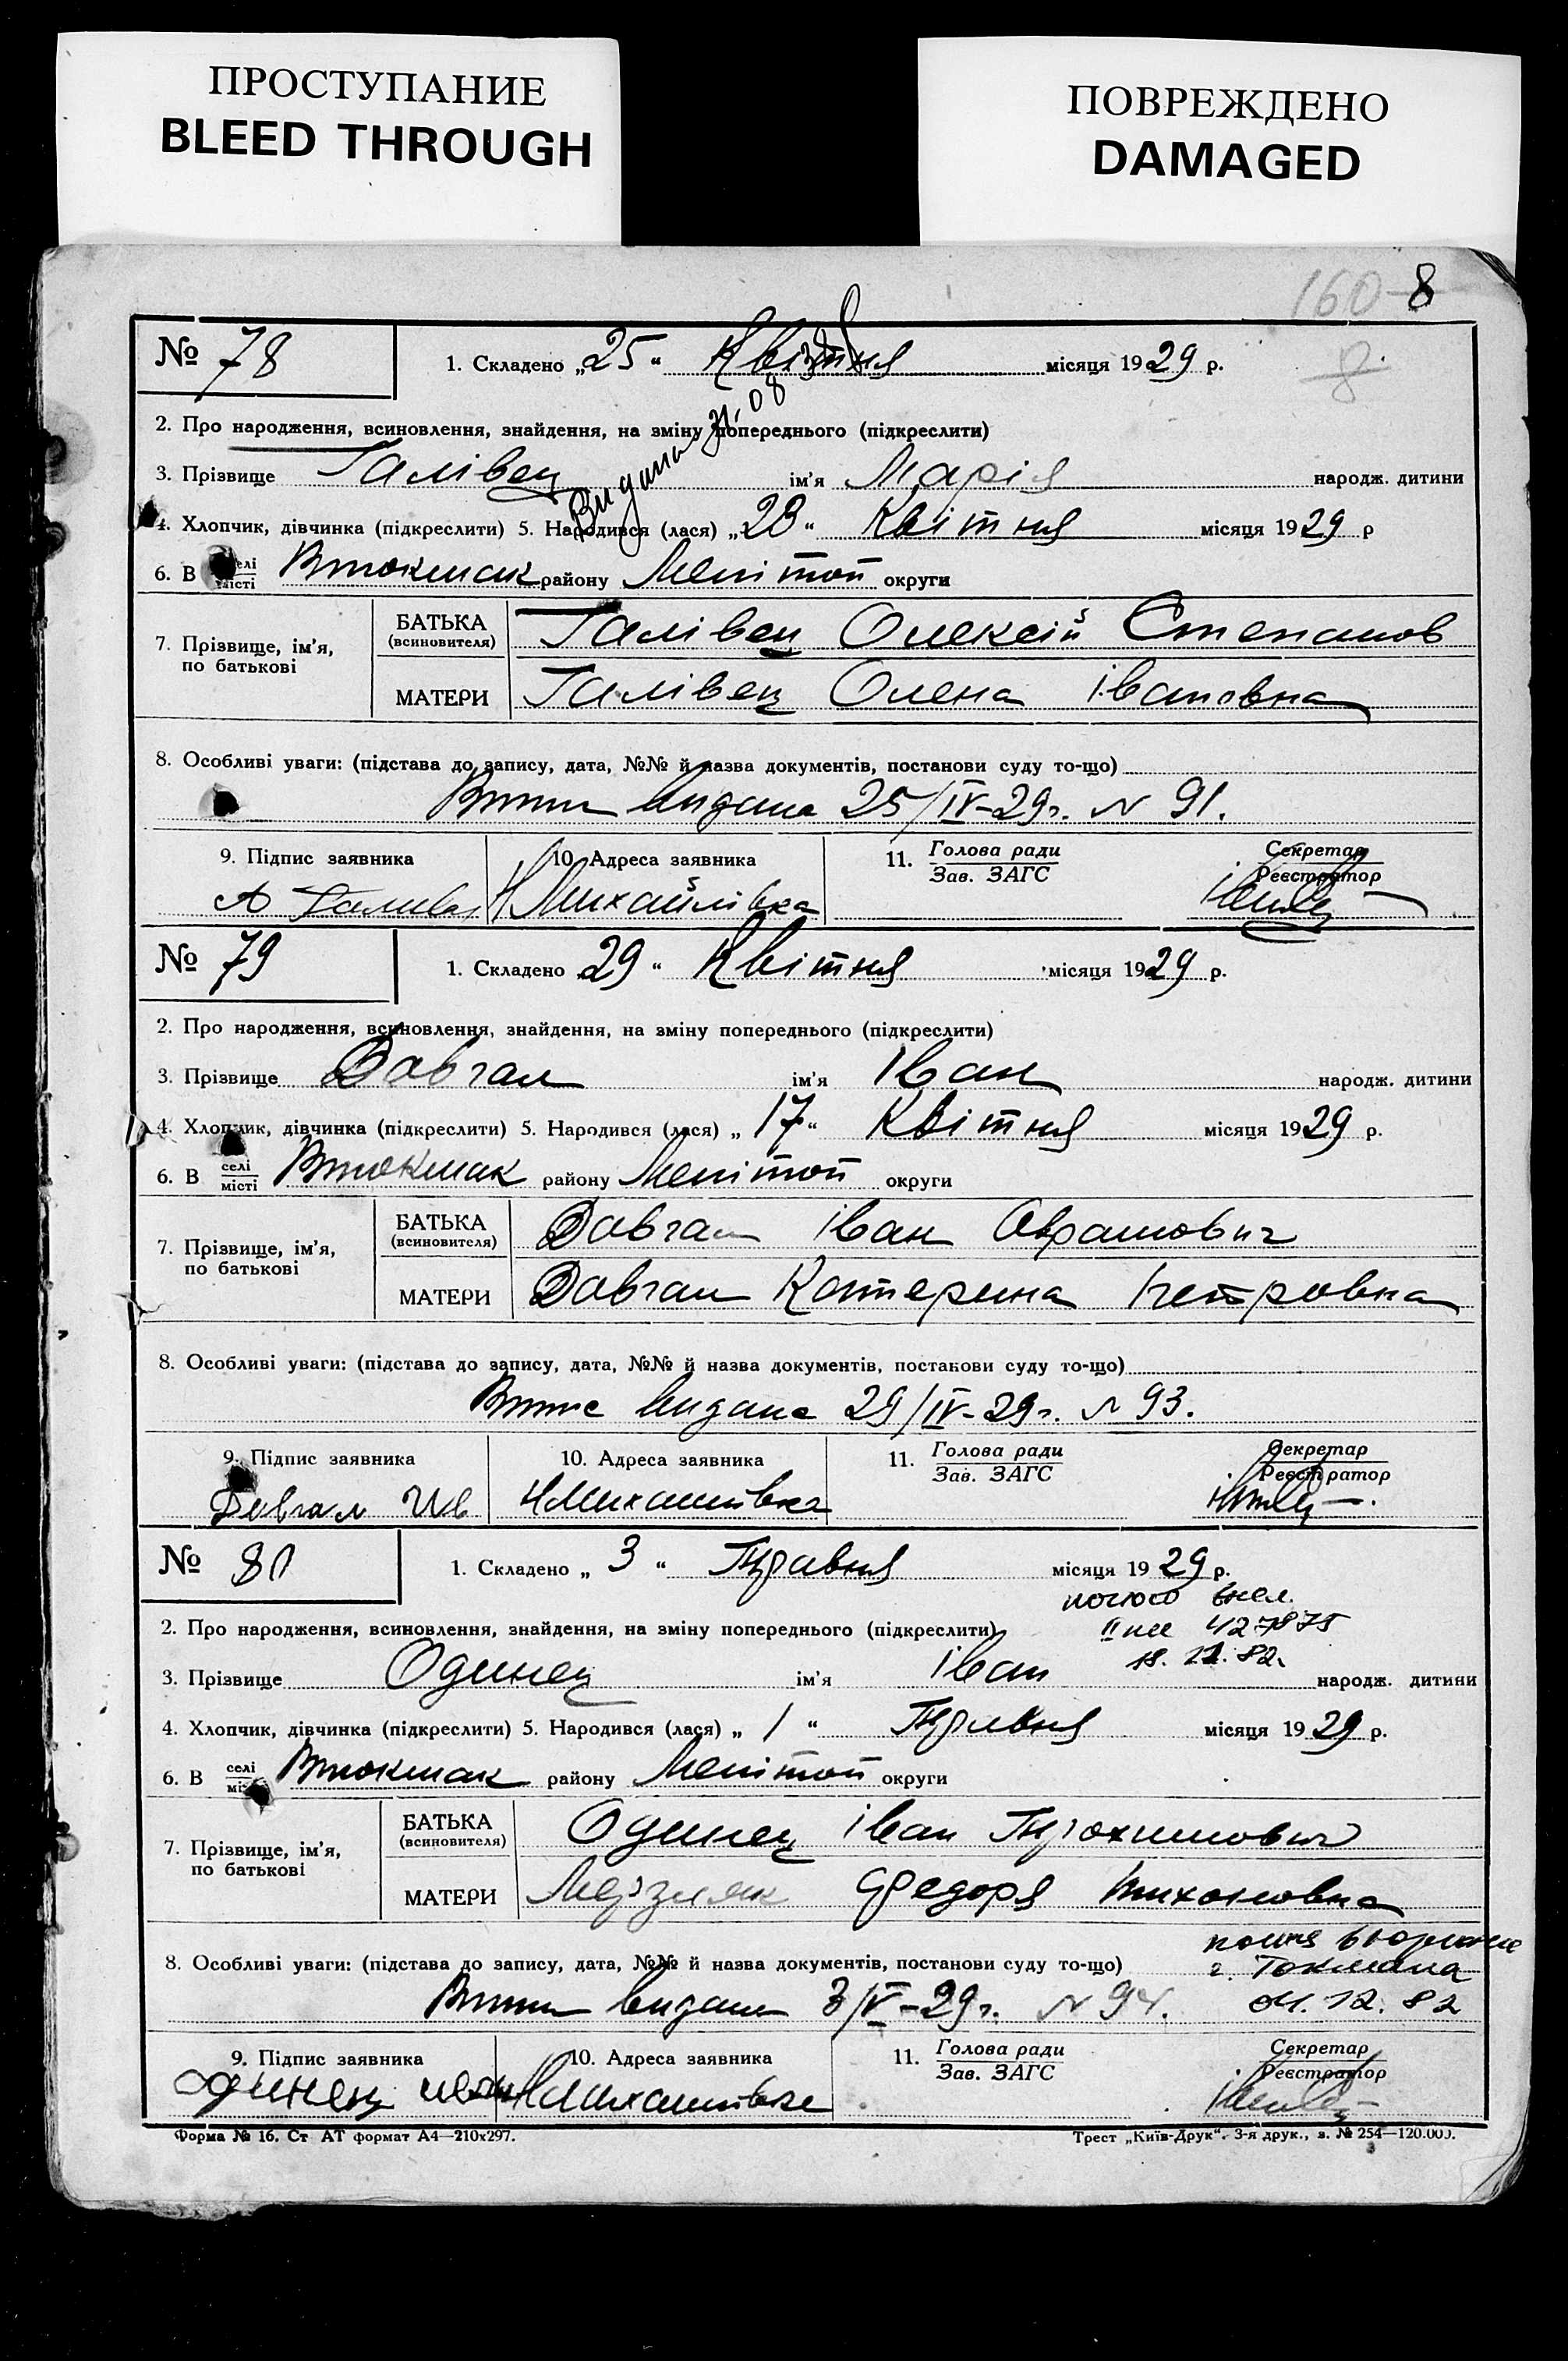 ПРОСТУПАНИЕ
BLEED THROUGH
ПОВРЕЖДЕНО
DAMAGED
160 8
№ 78 1. Складено „25“ Квітня місяця 1929 р.
2. Про народження, всиновлення, знайдення, на зміну попереднього (підкреслити)
3. Прізвище Галівец ім'я Марія народж. дитини
4. Хлопчик, дівчинка (підкреслити) 5. Народився (лася) „23“ Квітня місяця 1929 р
6. В селі місті Втокмак району Мелітоп округи
7. Прізвище, ім'я, по батькові
БАТЬКА (всиновителя) Галівец Олексій Степанов
МАТЕРИ Галівец Олена Івановна
8. Особливі уваги: (підстава до запису, дата, №№ й назва документів, постанови суду то-що)
видана 25/IV-29г. N 91.
9. Підпис заявника 10. Адреса заявника 11. Голова ради Зав. ЗАГС Секретар Реєстратор
А Галивец НМихайлівка
№ 79 1. Складено 29“ Квітня місяця 1929 р.
2. Про народження, всиновлення, знайдення, на зміну попереднього (підкреслити)
3. Прізвище Довгал ім'я Іван народж. дитини
4. Хлопчик, дівчинка (підкреслити) 5. Народився (лася) „17“ Квітня місяця 1929 р.
6. В селі місті Втокмак району Мелітоп округи
7. Прізвище, ім'я, по батькові
БАТЬКА (всиновителя) Довгал Іван Аврамович
МАТЕРИ Довгал Катерина Петровна
8. Особливі уваги: (підстава до запису, дата, №№ й назва документів, постанови суду то-що)
видана 29/IV-29г. N 93.
9. Підпис заявника 10. Адреса заявника 11. Голова ради Зав. ЗАГС Секретар Реєстратор
Довгал Ив НМихайлівка
№ 80 1. Складено „3“ Травня місяця 1929 р.
427875
2. Про народження, всиновлення, знайдення, на зміну попереднього (підкреслити)
3. Прізвище Одинец ім'я Іван народж. дитини
4. Хлопчик, дівчинка (підкреслити) 5. Народився (лася) „1“ Травня місяця 1929 р.
6. В селі місті Втокмак району Мелітоп округи
7. Прізвище, ім'я, по батькові
БАТЬКА (всиновителя) Одинец Іван Трохимович
МАТЕРИ Мерзляк Федора Тихоновна
8. Особливі уваги: (підстава до запису, дата, №№ й назва документів, постанови суду то-що)
г. Токмака
видана 3/V-29г. N 94. 12. 82
9. Підпис заявника 10. Адреса заявника 11. Голова ради Зав. ЗАГС Секретар Реєстратор
Одинец Иван НМихайлівка
Форма № 16. Ст АТ формат А4—210х297. Трест „Київ-Друк“. 3-я друк., з. № 254—120.000.